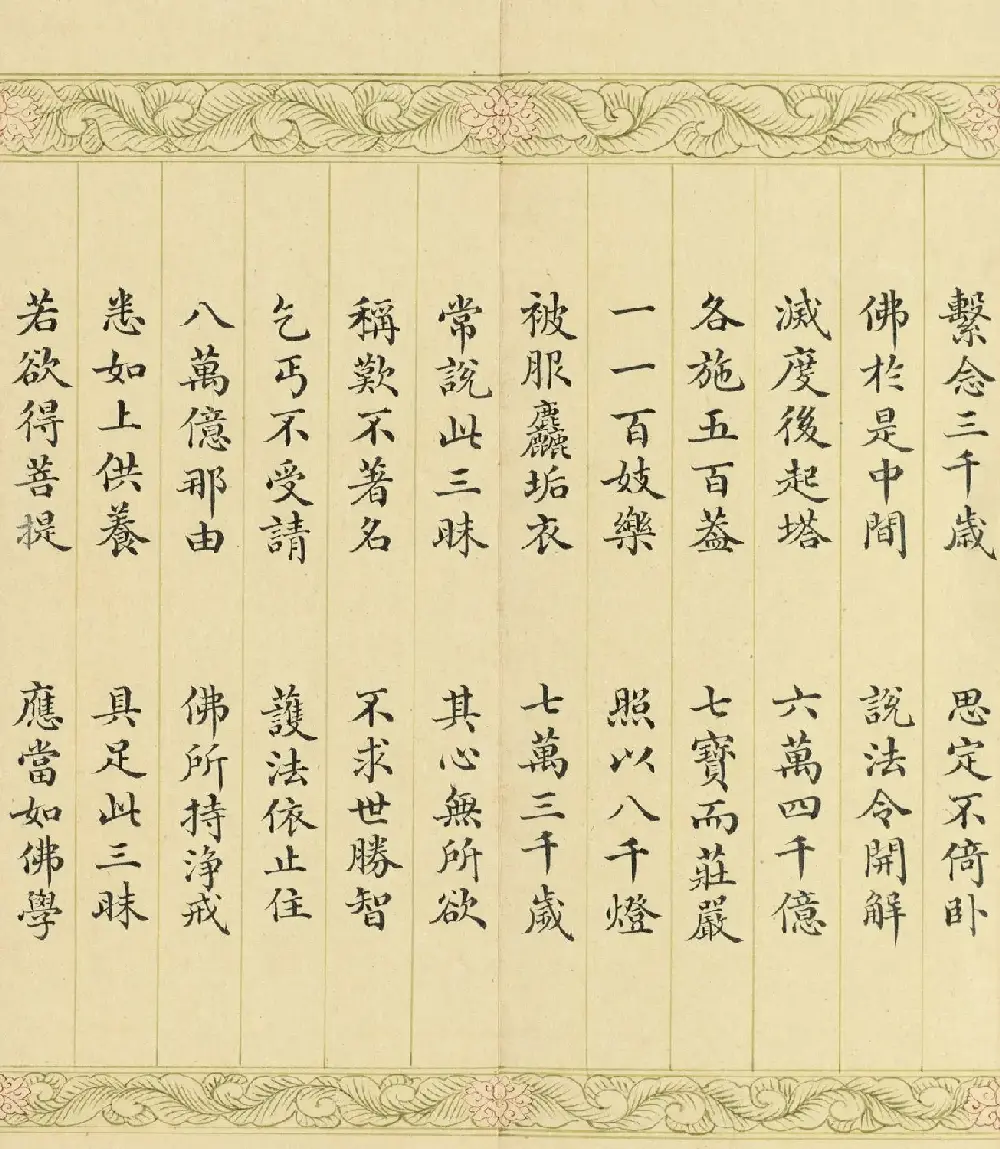 繫念三千歲　思定不倚卧
佛於是中間　說法令開解
滅度後起塔　六萬四千億
各施五百葢　七寶而莊嚴
一一百妓樂　照以八千燈
被服麤垢衣　七萬三千歲
常說此三昧　其心無所欲
稱歎不著名　不求世勝智
乞丐不受請　護法依止住
八萬億那由　佛所持淨戒
悉如上供養　具足此三昧
若欲得菩提　應當如佛學